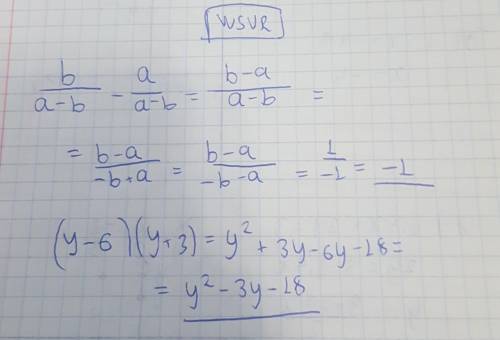 WSUR
b/(a-b) - a/(a-b) = (b-a)/(a-b) =
= (b-a)/(-b+a) = (b-a)/(-b-a) = 1/-1 = -1
(y-6)(y+3) = y² + 3y - 6y - 18 =
= y² - 3y - 18